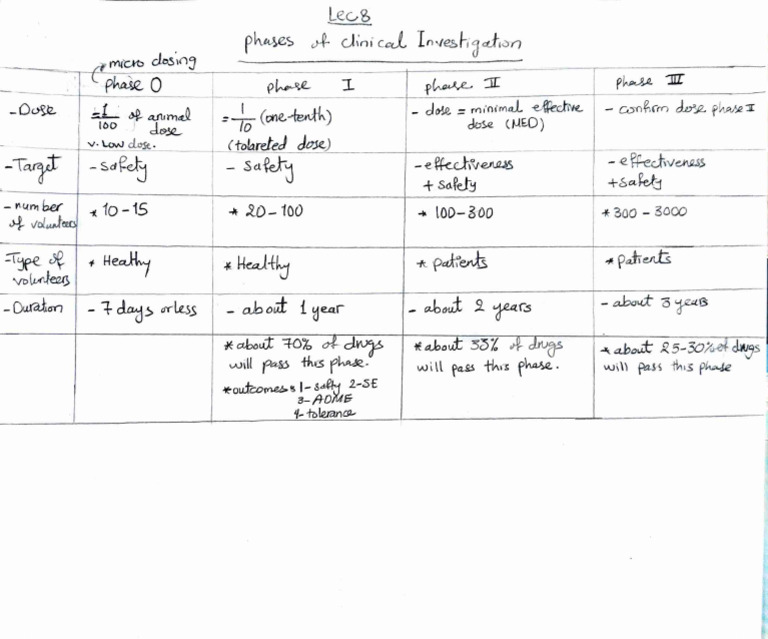 Lec8
phases of clinical Investigation
micro dosing
phase 0
phase I
phase II
phase III
-Dose
= 1/100 of animal
dose
v. Low dose.
= 1/10 (one-tenth)
(tolareted dose)
- dose = minimal effective
dose (MED)
- confirm dose phase II
-Target
- safety
- safety
-effectiveness
+ safety
- effectiveness
+safety
-number
of volunteers
* 10-15
* 20-100
* 100-300
* 300-3000
-Type of
volunteers
* Healthy
* Healthy
* patients
* patients
-Duration
- 7 days or less
- about 1 year
- about 2 years
- about 3 years
* about 70% of drugs
will pass this phase.
*outcomes: 1- safty 2-SE
3- ADME
4- tolerance
* about 33% of drugs
will pass this phase.
* about 25-30% of drugs
will pass this phase